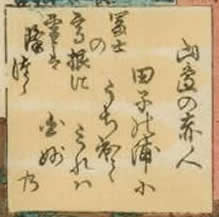 山邊の赤人
田子の浦に
うち出て
みれハ
白妙
乃
冨士
の
高根に
雪は
降つゝ